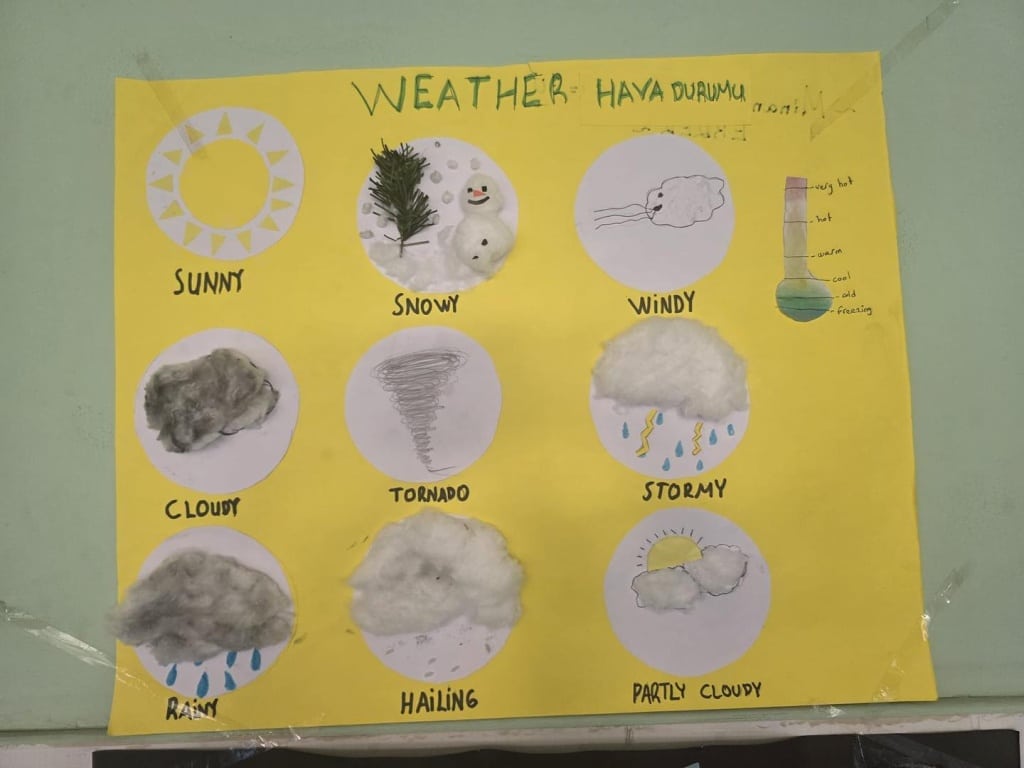 WEATHER= HAVA DURUMU
SUNNY
SNOWY
WiNDY
very hot
hot
warm
cool
cold
freezing
CLOUDY
TORNADO
STORMY
RAiNY
HAiLiNG
PARTLY CLOUDY